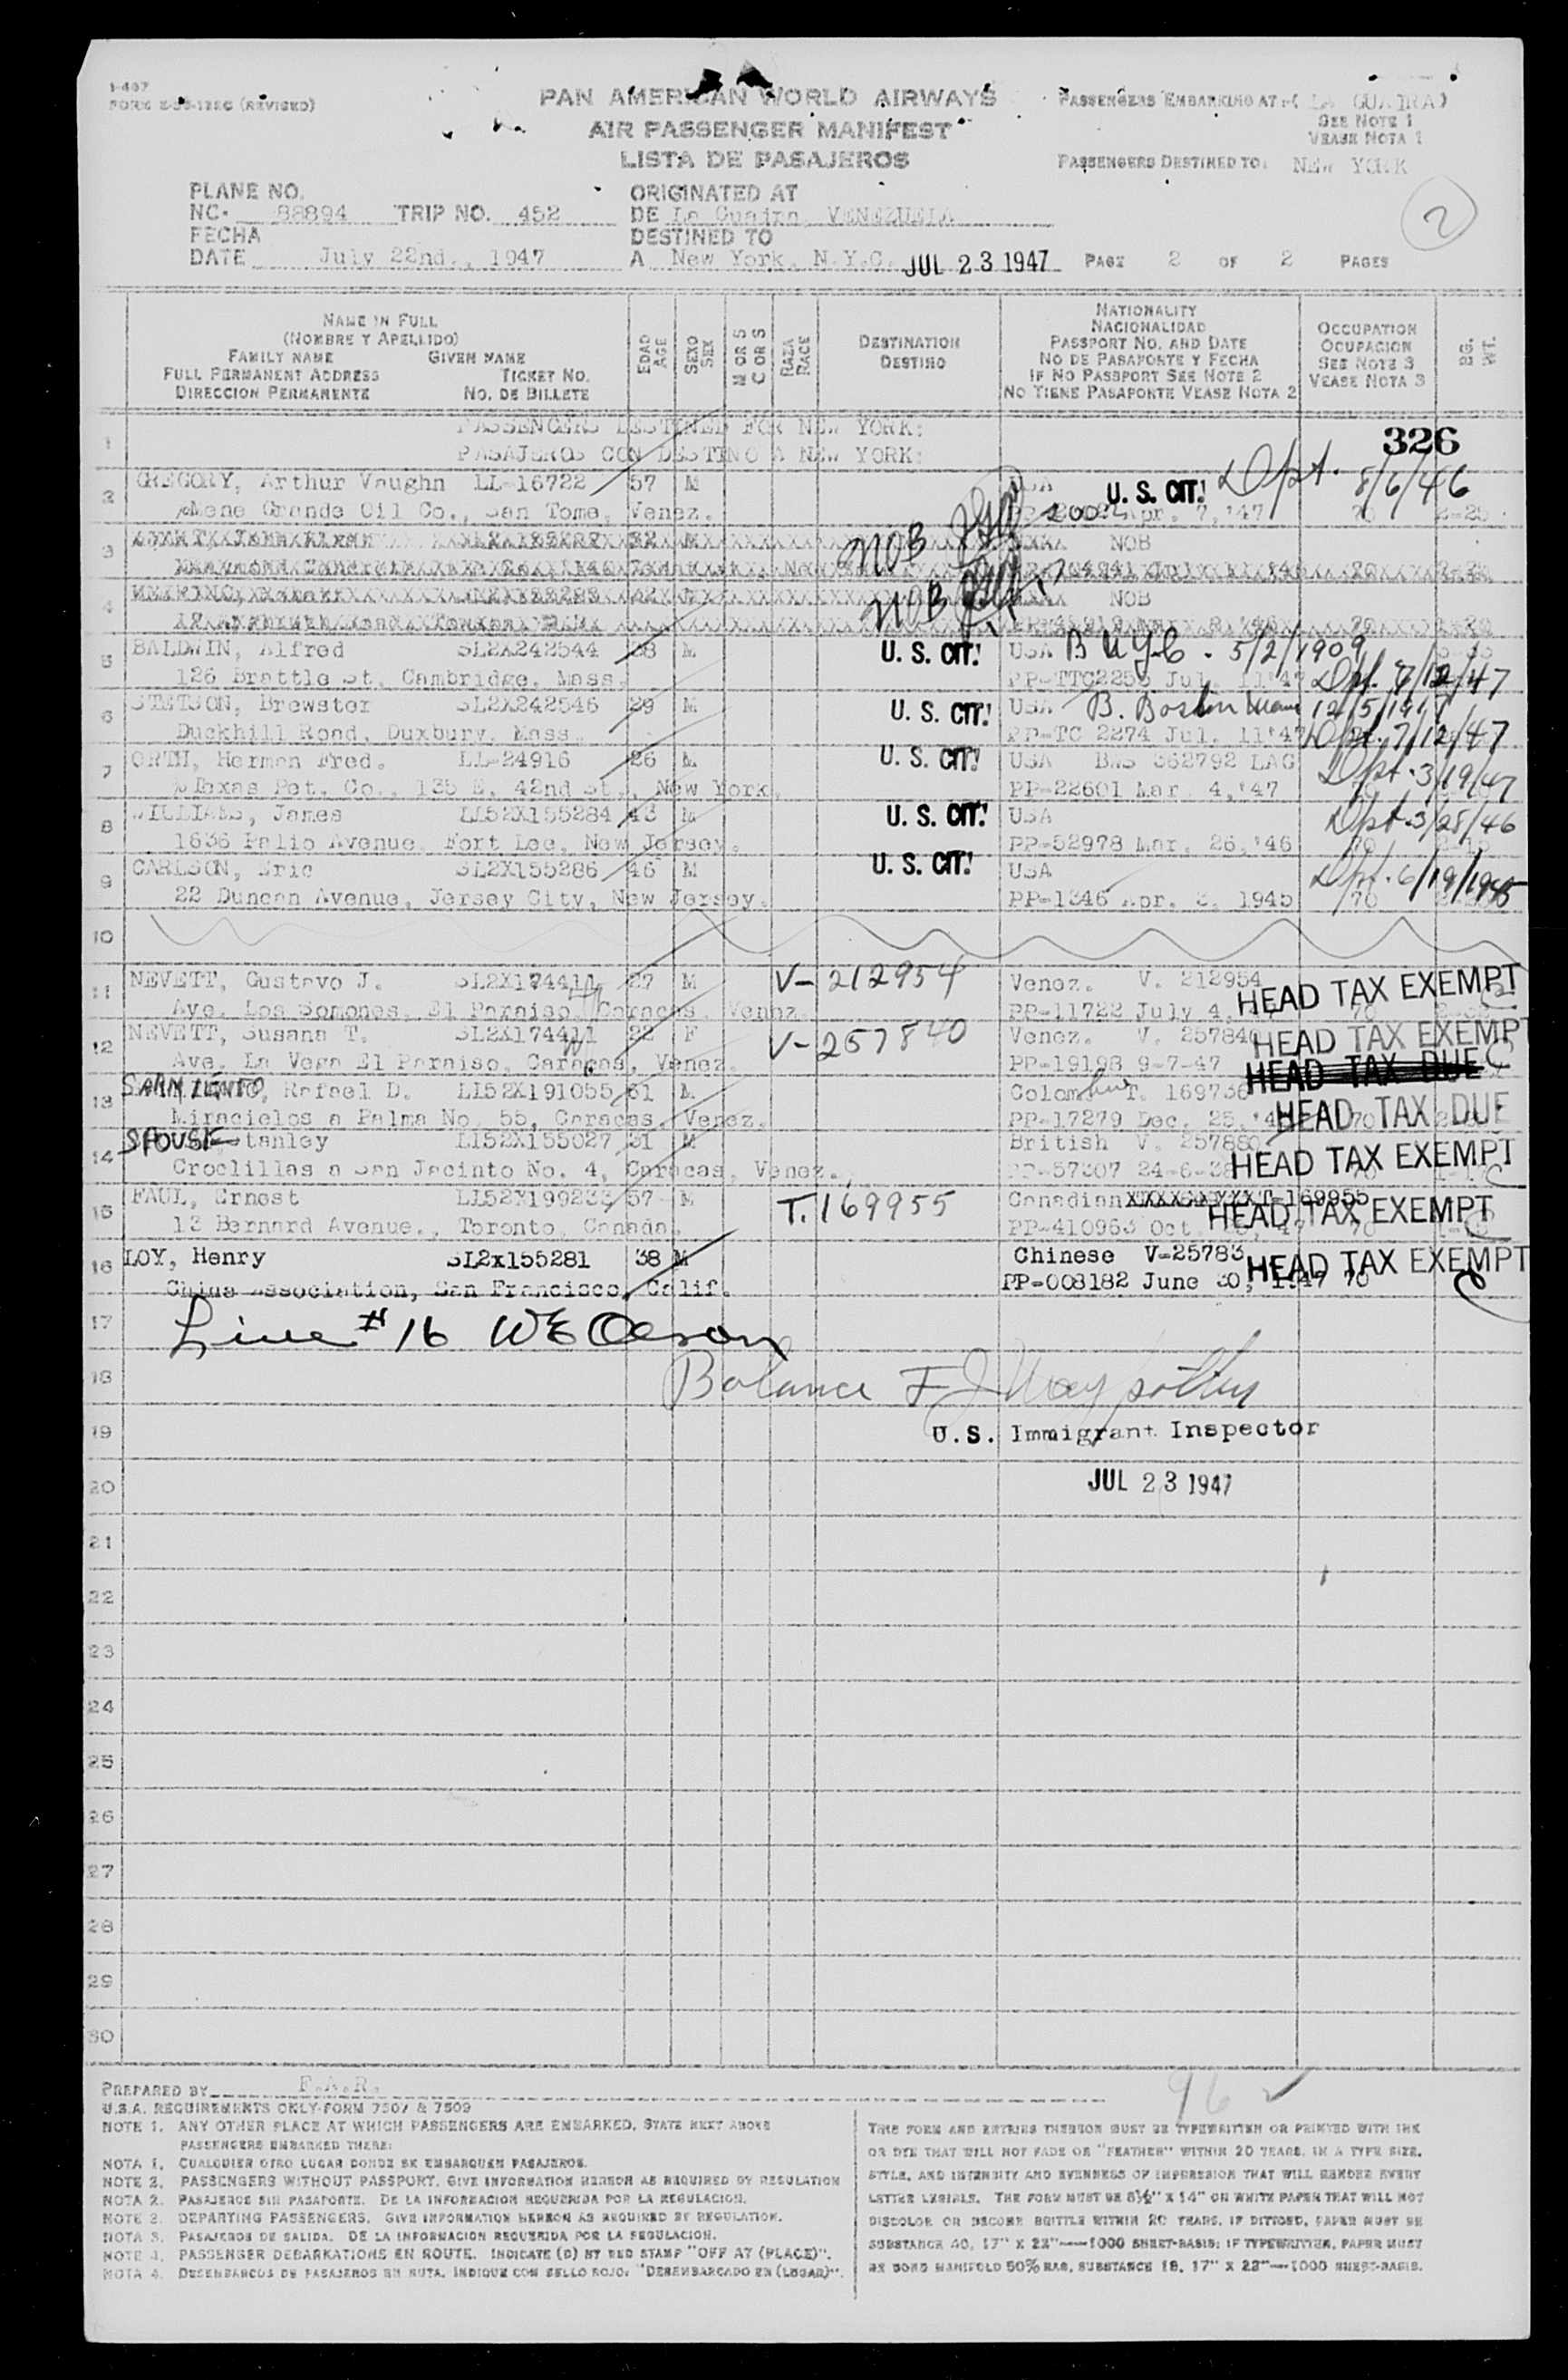 1-407
FORM E-36-128C (REVISED)
PAN AMERICAN WORLD AIRWAYS
AIR PASSENGER MANIFEST
LISTA DE PASAJEROS
PASSENGERS EMBARKING AT (LA GUAIRA)
SEE NOTE 1
VEASE NOTA 1
PASSENGERS DESTINED TO: NEW YORK
2
PLANE NO.
NC- 88894 TRIP NO. 452
FECHA
DATE July 22nd., 1947
ORIGINATED AT
DE La Guaira, VENEZUELA
DESTINED TO
A New York, N.Y.C. JUL 23 1947 PAGE 2 OF 2 PAGES
NAME IN FULL
(NOMBRE Y APELLIDO)
FAMILY NAME GIVEN NAME
FULL PERMANENT ADDRESS TICKET NO.
DIRECCION PERMANENTE NO. DE BILLETE
EDAD AGE
SEXO SEX
M OR S C OR S
RAZA RACE
DESTINATION
DESTINO
NATIONALITY
NACIONALIDAD
PASSPORT NO. AND DATE
NO DE PASAPORTE Y FECHA
IF NO PASSPORT SEE NOTE 2
NO TIENE PASAPORTE VEASE NOTA 2
OCCUPATION
OCUPACION
SEE NOTE 3
VEASE NOTA 3
BG. WT.
1 PASSENGERS DESTINED FOR NEW YORK:
PASAJEROS CON DESTINO A NEW YORK:
326
2 GREGORY, Arthur Vaughn LL-16722 57 M USA U.S. CIT. Dpt. 8/6/46
Mene Grande Oil Co., San Tome, Venez. Apr. 7, '47 70
3 NOB NOB
4 NOB NOB
5 BALDWIN, Alfred SL2X242544 38 M U.S. CIT. USA B NYC. 5/2/1909
126 Brattle St. Cambridge, Mass. PP-TTC2255 Jul. 11'47 Dpt. 7/12/47
6 STETSON, Brewster SL2X242546 29 M U.S. CIT. USA B. Boston Mass 12/5/1917
Duckhill Road, Duxbury, Mass. PP-TC 2274 Jul. 11'47 Dpt. 7/12/47
7 ORTH, Herman Fred. LL-24916 26 M U.S. CIT. USA BNS 362792 LAG
Texas Pet. Co., 135 E. 42nd St., New York. PP-22601 Mar. 4,'47 Dpt. 3/19/47
8 WILLIAMS, James LL52X155284 43 M U.S. CIT. USA
1636 Palio Avenue, Fort Lee, New Jersey. PP-52978 Mar. 26,'46 Dpt. 3/28/46
9 CARLSON, Eric SL2X155286 46 M U.S. CIT. USA
22 Duncan Avenue, Jersey City, New Jersey. PP-1346 Apr. 3, 1945 70 Dpt. 6/19/1945
10
11 NEVETT, Gustavo J. SL2X174411 27 M V-212954 Venez. V. 212954
Ave. Los Somones, El Paraiso, Caracas, Venez. PP-11722 July 4, HEAD TAX EXEMPT
12 NEVETT, Susana T. SL2X174411 22 F V-257840 Venez. V. 257840
Ave. La Vega El Paraiso, Caracas, Venez. PP-19198 9-7-47 HEAD TAX EXEMPT
HEAD TAX DUE
13 SARMIENTO, Rafael D. LL52X191055 61 M Colombine T. 169736
Miracielos a Palma No. 55, Caracas, Venez. PP-17279 Dec. 25, '4 HEAD TAX DUE
14 SPOUSE Stanley LL52X155027 31 M British V. 257880
Croclillas a San Jacinto No. 4, Caracas, Venez. PP-57307 24-6-38 HEAD TAX EXEMPT
15 FAUL, Ernest LL52X199233 57 M T.169955 Canadian T-169955
13 Bernard Avenue., Toronto, Canada. PP-410963 Oct. HEAD TAX EXEMPT
16 LOY, Henry SL2x155281 38 M Chinese V-25783
China Association, San Francisco, Calif. PP-008182 June 30, 1947 70 HEAD TAX EXEMPT
17 Line #16 WE Oleson
18 Balance F J
19 U.S. Immigrant Inspector
20 JUL 23 1947
21
22
23
24
25
26
27
28
29
30
PREPARED BY F.A.R.
96
U.S.A. REQUIREMENTS ONLY-FORM 7507 & 7509
NOTE 1. ANY OTHER PLACE AT WHICH PASSENGERS ARE EMBARKED, STATE NEXT ABOVE
PASSENGERS EMBARKED THERE:
NOTA 1. CUALQUIER OTRO LUGAR DONDE SE EMBARQUEN PASAJEROS.
NOTE 2. PASSENGERS WITHOUT PASSPORT. GIVE INFORMATION HEREON AS REQUIRED BY REGULATION
NOTA 2. PASAJEROS SIN PASAPORTE. DE LA INFORMACION REQUERIDA POR LA REGULACION.
NOTE 3. DEPARTING PASSENGERS. GIVE INFORMATION HEREON AS REQUIRED BY REGULATION.
NOTA 3. PASAJEROS DE SALIDA. DE LA INFORMACION REQUERIDA POR LA REGULACION.
NOTE 4. PASSENGER DEBARKATIONS EN ROUTE. INDICATE (D) BY RED STAMP "OFF AT (PLACE)".
NOTA 4. DESEMBARCOS DE PASAJEROS EN RUTA. INDIQUE CON SELLO ROJO: "DESEMBARCADO EN (LUGAR)".
THIS FORM AND ENTRIES THEREON MUST BE TYPEWRITTEN OR PRINTED WITH INK
OR DYE THAT WILL NOT FADE OR "FEATHER" WITHIN 20 YEARS, IN A TYPE SIZE,
STYLE, AND INTENSITY AND EVENNESS OF IMPRESSION THAT WILL RENDER EVERY
LETTER LEGIBLE. THE FORM MUST BE 8½" X 14" ON WHITE PAPER THAT WILL NOT
DISCOLOR OR BECOME BRITTLE WITHIN 20 YEARS. IF DITTOED, PAPER MUST BE
SUBSTANCE 40, 17" X 22"—1000 SHEET-BASIS; IF TYPEWRITTEN, PAPER MUST
BE BOND MANIFOLD 50% RAG, SUBSTANCE 18, 17" X 22"—1000 SHEET-BASIS.